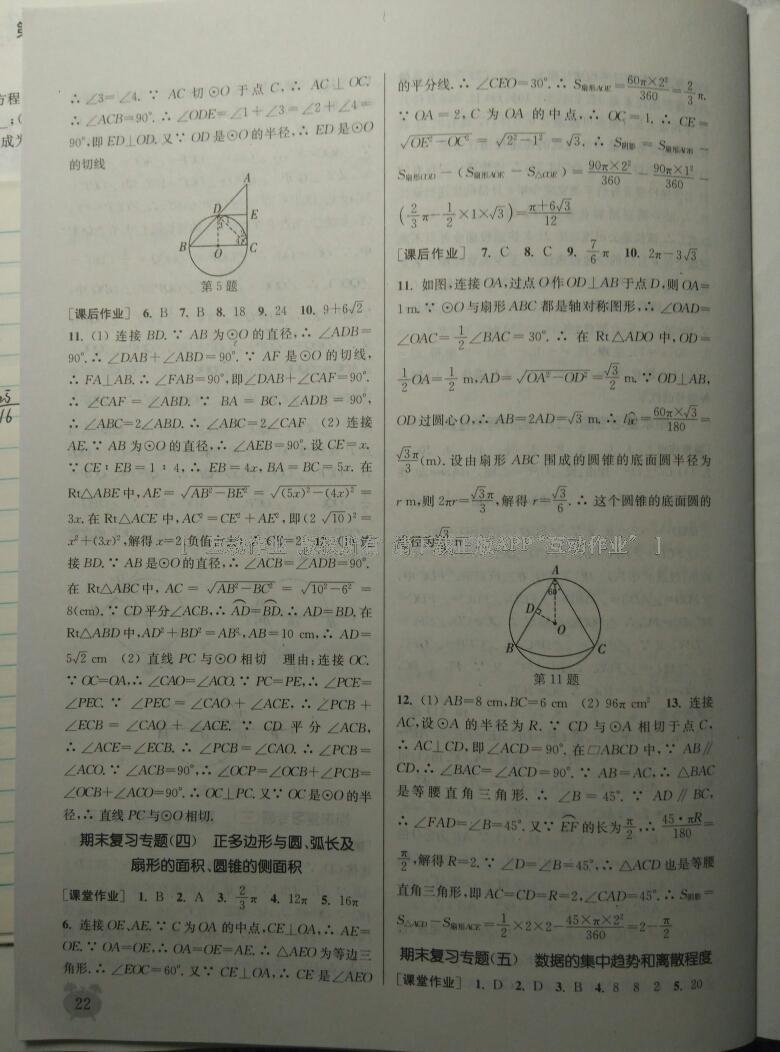 ∴ ∠3=∠4.∵ AC 切⊙O 于点 C,∴ AC⊥OC.
∴ ∠ACB=90°.∴ ∠ODE=∠1+∠3=∠2+∠4=
90°,即 ED⊥OD.又∵ OD 是⊙O 的半径,∴ ED 是⊙O
的切线
A
D
E
B
O
C
第 5 题
[课后作业] 6. B 7. B 8. 18 9. 24 10. 9+6√2
11. (1) 连接 BD.∵ AB 为⊙O 的直径,∴ ∠ADB=
90°.∴ ∠DAB+∠ABD=90°.∵ AF 是⊙O 的切线,
∴ FA⊥AB.∴ ∠FAB=90°,即∠DAB+∠CAF=90°.
∴ ∠CAF = ∠ABD.∵ BA = BC, ∠ADB = 90°,
∴ ∠ABC=2∠ABD.∴ ∠ABC=2∠CAF (2) 连接
AE.∵ AB 为⊙O 的直径,∴ ∠AEB=90°. 设 CE=x.
∵ CE∶EB=1∶4,∴ EB=4x,BA=BC=5x. 在
Rt△ABE 中,AE = √(AB²-BE²) = √((5x)²-(4x)²) =
3x.在 Rt△ACE 中,AC²=CE²+AE²,即(2√10)²=
x²+(3x)²,解得 x=2(负值
接 BD.∵ AB 是⊙O 的直径,∴ ∠ACB=∠ADB=90°.
在 Rt△ABC 中, AC = √(AB²-BC²) = √(10²-6²) =
8(cm).∵ CD 平分∠ACB,∴ AD=BD.∴ AD=BD.在
Rt△ABD 中,AD²+BD²=AB²,AB=10 cm,∴ AD=
5√2 cm (2) 直线 PC 与⊙O 相切 理由:连接 OC.
∵ OC=OA,∴ ∠CAO=∠ACO.∵ PC=PE,∴ ∠PCE=
∠PEC.∵ ∠PEC = ∠CAO + ∠ACE,∴ ∠PCB +
∠ECB = ∠CAO + ∠ACE.∵ CD 平分 ∠ACB,
∴ ∠ACE=∠ECB.∴ ∠PCB=∠CAO.∴ ∠PCB=
∠ACO.∵ ∠ACB=90°,∴ ∠OCP=∠OCB+∠PCB=
∠OCB+∠ACO=90°.∴ OC⊥PC.又∵ OC 是⊙O 的半
径,∴ 直线 PC 与⊙O 相切.
期末复习专题(四) 正多边形与圆、弧长及
扇形的面积、圆锥的侧面积
[课堂作业] 1. B 2. A 3. 2/3 π 4. 12π 5. 16π
6. 连接 OE、AE.∵ C 为 OA 的中点,CE⊥OA,∴ AE=
OE.∵ OA=OE,∴ OA=OE=AE.∴ △AEO 为等边三
角形.∴ ∠EOC=60°.又∵ CE⊥OA,∴ CE 是∠AEO
22
的平分线.∴ ∠CEO=30°.∴ S扇形AOE=60π×2²/360=2/3 π.
∵ OA = 2, C 为 OA 的中点,∴ OC = 1.∴ CE =
√(OE²-OC²) = √(2²-1²) = √3.∴ S阴影 = S扇形AOB −
S扇形COD − (S扇形AOE − S△COE) = 90π×2²/360 − 90π×1²/360 −
(2/3 π−1/2×1×√3)=(π+6√3)/12
[课后作业] 7. C 8. C 9. 7/6 π 10. 2π−3√3
11. 如图,连接 OA,过点 O 作 OD⊥AB 于点 D,则 OA=
1 m.∵ ⊙O 与扇形 ABC 都是轴对称图形,∴ ∠OAD=
∠OAC=1/2∠BAC=30°.∴ 在 Rt△ADO 中,OD=
1/2 OA=1/2 m,AD=√(OA²-OD²)=√3/2 m.∵ OD⊥AB,
OD 过圆心 O,∴ AB=2AD=√3 m.∴ l BC=60π×√3/180=
√3π/3(m). 设由扇形 ABC 围成的圆锥的底面圆半径为
r m,则 2πr=√3π/3,解得 r=√3/6.∴ 这个圆锥的底面圆的
A
60°
D
O
B
C
第 11 题
12. (1) AB=8 cm,BC=6 cm (2) 96π cm² 13. 连接
AC,设⊙A 的半径为 R.∵ CD 与⊙A 相切于点 C,
∴ AC⊥CD,即∠ACD=90°. 在▱ABCD 中,∵ AB∥
CD,∴ ∠BAC=∠ACD=90°.∵ AB=AC,∴ △BAC
是等腰直角三角形.∴ ∠B = 45°.∵ AD∥BC,
∴ ∠FAD=∠B=45°.又∵ EF 的长为 π/2,∴ 45·πR/180=
π/2,解得 R=2.∵ ∠D=∠B=45°,∴ △ACD 也是等腰
直角三角形,即 AC=CD=R=2,∠CAD=45°.∴ S阴影=
S△ACD−S扇形ACE=1/2×2×2−45×π×2²/360=2−π/2
期末复习专题(五) 数据的集中趋势和离散程度
[课堂作业] 1. D 2. D 3. B 4. 8 8 2 5. 20